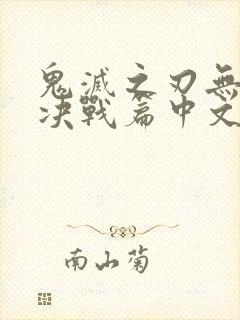 鬼滅之刃無
决戰篇中文
南山菊